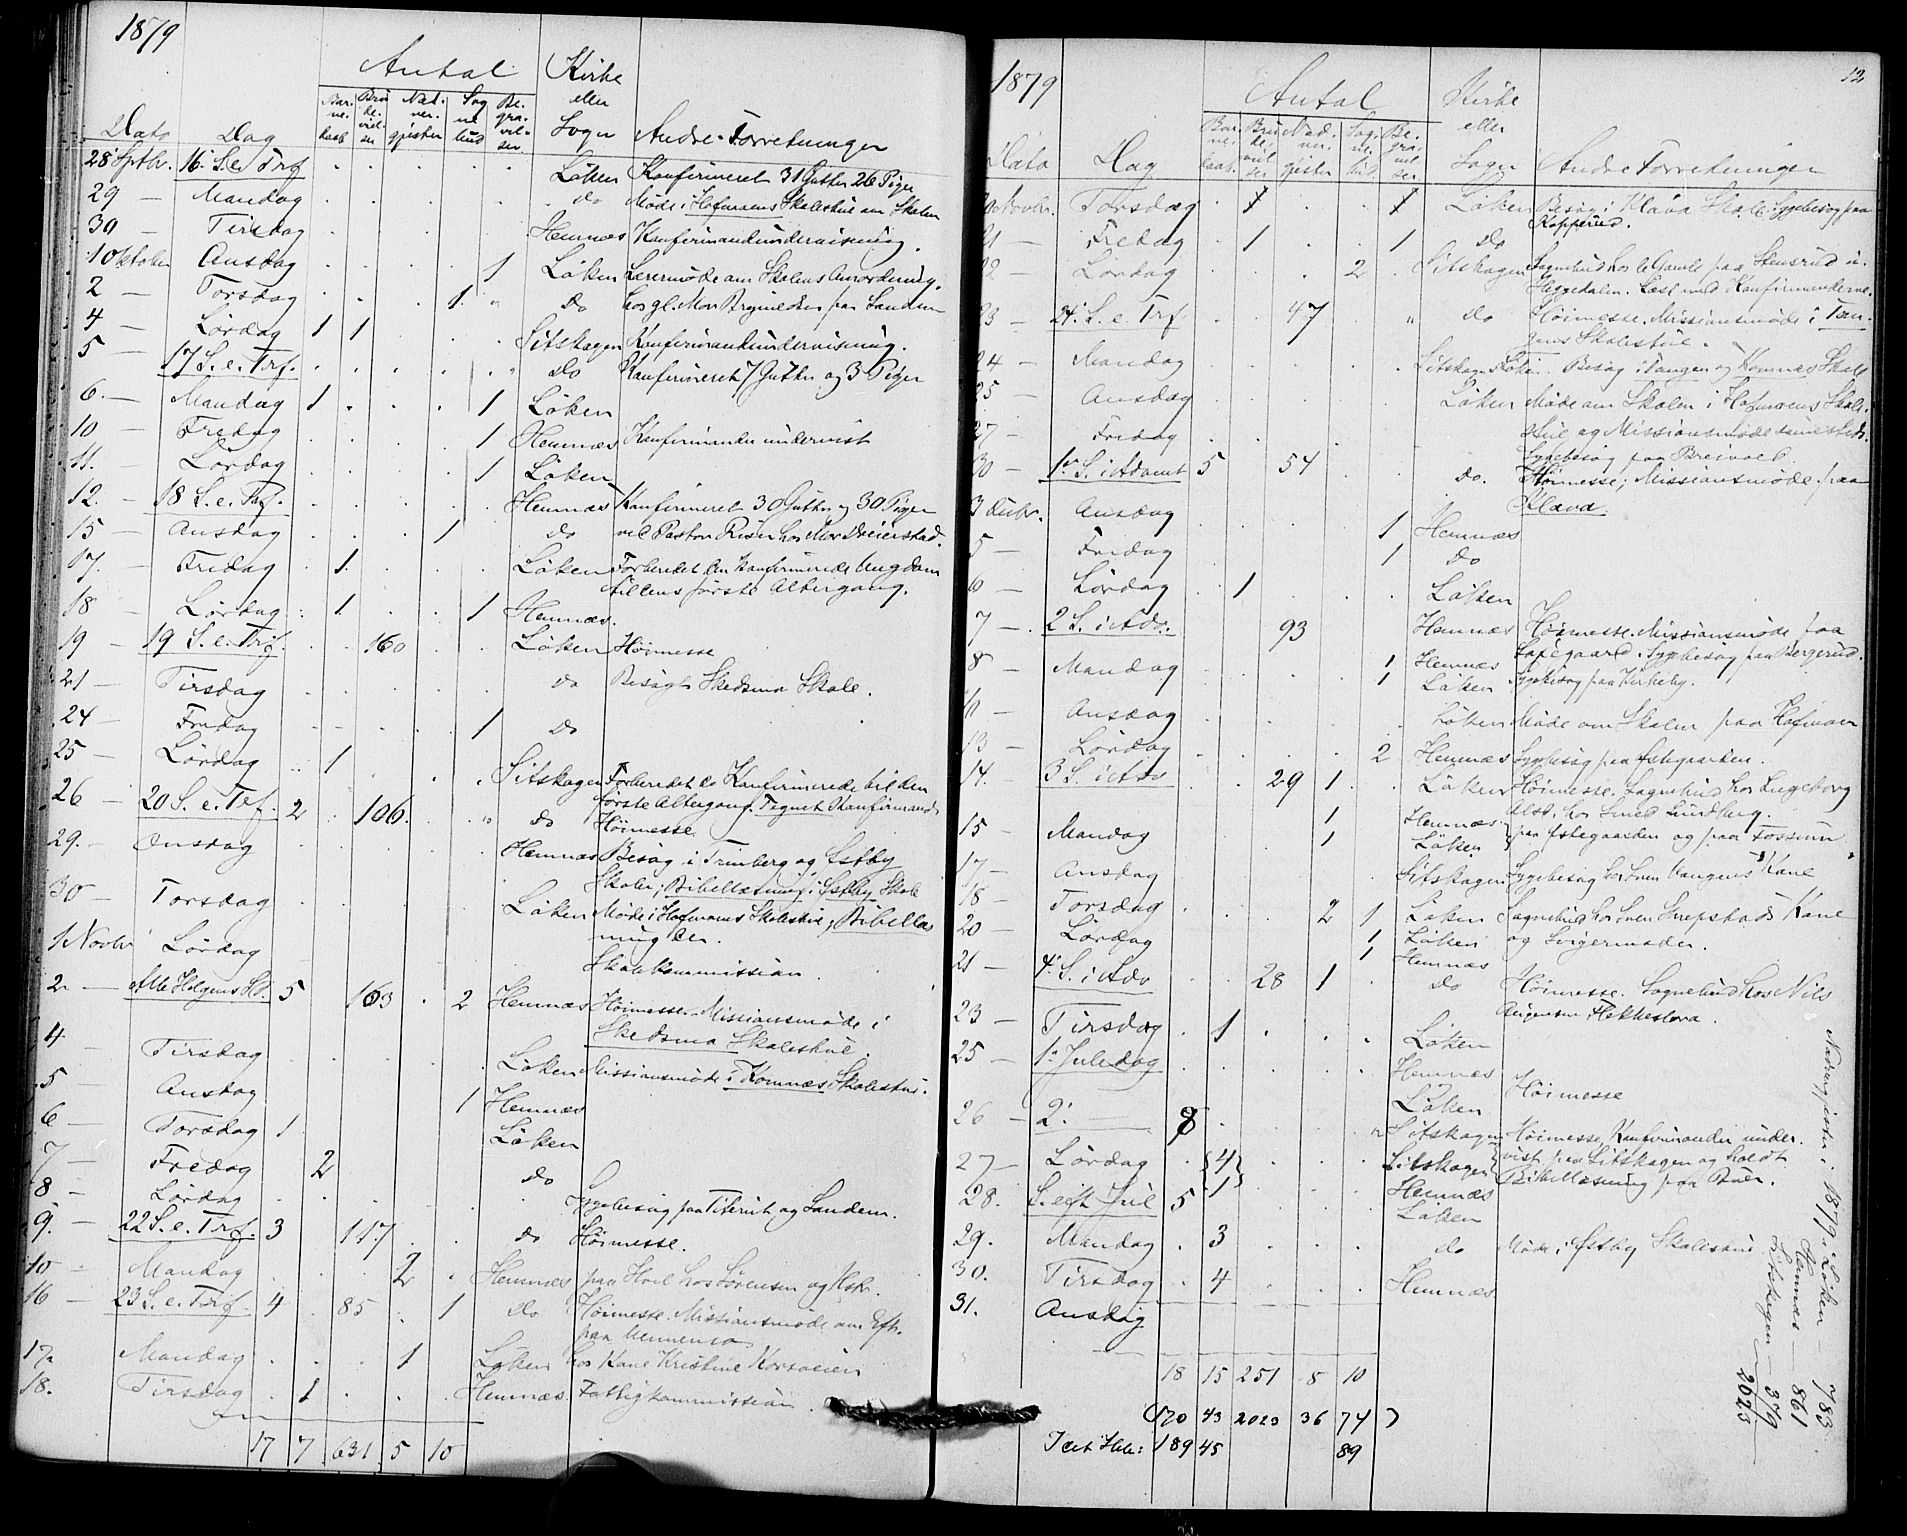 1879
Antal
Kirke eller Sogn
Dato Dag Barnedaab Brudevielser Nadvergjester Sognebud Begravelser Andre Forretninger
28 Sptbr. 16. S. e. Trf. Løken Konfirmeret 31 Gutter 26 Piger
29 — Mandag do Møde i Hofmoens Skolestue om Skolen
30 — Tirsdag Hemnæs Konfirmandundervisning.
1 Oktober Onsdag 1 Løken Lærermøde om Skolens Anordning.
2 — Torsdag 1 " do hos gl. Mor Brynildsen paa Sanden
4 — Lørdag 1 1 Sitskogen Konfirmandundervisning.
5 — 17 S. e. Trf. " do Konfirmeret 7 Gutter og 3 Piger
6. — Mandag 1 1 Løken
10 — Fredag 1 Hemnæs Konfirmander undervist
11. — Lørdag 1 Løken
12. — 18 S. e. Trf. Hemnæs Konfirmeret 30 Gutter og 30 Piger
15 — Onsdag 1 do ved Pastor Riser hos Mor Dreierstad.
17. — Fredag 1 Løken Forberedet den Konfirmerede Ungdom
til dens første Altergang.
18 — Lørdag 1 1 Hemnæs.
19 — 19 S. e. Trf. 160 Løken Høimesse
21 — Tirsdag do Besøgt Skedsmo Skole.
24 — Fredag 1 do
25 — Lørdag 1 Sitskogen Forberedet de Konfirmerede til den
første Altergang. Tegnet Konfirmand
26 — 20 S. e. Trf. 2 106. " do Høimesse
29. — Onsdag Hemnæs Besøg i Trinborg og Østby
Skoler; Bibellæsning i Østby Skole
30 — Torsdag Løken Møde i Hofmoens Skolestue, Bibellæs
ning der.
1 Novbr Lørdag Skolekommission.
2 — Alle Helgens Sd. 5 163 2 Hemnæs Høimesse. Missionsmøde i
Skedsmo Skolestue.
4 Tirsdag Løken Missionsmøde i Komnæs Skolestue.
5 — Onsdag 1 Hemnæs
6 — Torsdag 1 Løken
7 — Fredag 2 do
8 — Lørdag Sygebesøg paa Titerud og Sanden.
9. — 22 S. e. Trf. 3 117 do Høimesse.
10 — Mandag 2 Hemnæs paa Hvil hos Sørensen og Kone.
16 — 23 S. e. Trf. 4 85 1 do Høimesse. Missionsmøde om Eft.
paa
17. — Mandag 1 Løken hos Kone Kristine
18. — Tirsdag 1 Hemnæs Fattigkommission.
17 7 631 5 10
1879 12
Antal
Kirke eller Sogn
Dato Dag Barnedaab. Brudevielser Nadvergjester Sognebud. Begravelser Andre Forretninger
20 Novbr. Torsdag 1 1 Løken Besøg i Kláva Skole Sygebesøg paa
Kopperud.
21 — Fredag 1 1 do
22 — Lørdag 2 Sitskogen Sognebud hos de Gamle paa Stensrud i
Heggedalen. Læst med Konfirmanderne.
23 — 24. S. e. Trf 47 " do Høimesse. Missionsmøde i Tan-
gens Skolestue.
24 — Mandag Sitskogen Løken. Besøg i Tangen og Komnæs Skole
25 Onsdag Løken Møde om Skolen i Hofmoens Skole-
27 — Fredag stue og Missionsmøde sammesteds.
Sygebesøg paa Breivold.
30 — 1ste S. i Advent 5 54 do. Høimesse; Missionsmøde paa
Klava.
3 Decbr. Onsdag 1 Hemnæs
5 — Fredag 1 do
6 — Lørdag 1 Løken
7 — 2 S. i Adv. 93 Hemnæs Høimesse. Missionsmøde paa
Sygebesøg paa Bergerud.
8 — Mandag 1 Hemnæs
1 Løken Sygebesøg paa Kirkeby.
10 — Onsdag Løken Møde om Skolen paa Hofmoen
13 — Lørdag 2 Hemnæs Sygebesøg paa Østegaarden.
14. — 3 S. i Adv 29 1 Løken Høimesse. Sognebud hos Ingeborg
Olsd, hos Smed Lundberg.
15 — Mandag 1 Hemnæs paa Østegaarden og paa Fossum
1 Løken
17 — Onsdag Sitskogen Sygebesøg hos Sven Vangens Kone
18 — Torsdag 2 1 Løken Sognebud hos Sven Skrepstads Kone
20 — Lørdag 1 Løken og Svigermoder.
1 Hemnæs
21 — 4. S. i Adv 28 1 do Høimesse. Sognebud hos Nils
Flekkestora.
23 — Tirsdag 1 Løken
25 — 1. Juledag Hemnæs Høimesse
26 — 2. — 8 Løken
" Sitskogen Høimesse, Konfirmander under-
27 — Lørdag 4 Sitskogen vist paa Sitskogen og holdt
28. — S. eft Jul 5 1 Hemnæs Bibellæsning paa Buer.
Løken
29. Mandag 3 do Møde i Østby Skolestue
30. Tirsdag 4 Hemnæs
31. Onsdag
18 15 251 5 10
(170 43 2023 36 74)
I alt Hele: 189 45 89
Nadvergjester i 1879 i Løken — 783
Hemnæs — 861
Sitskogen — 379
2023